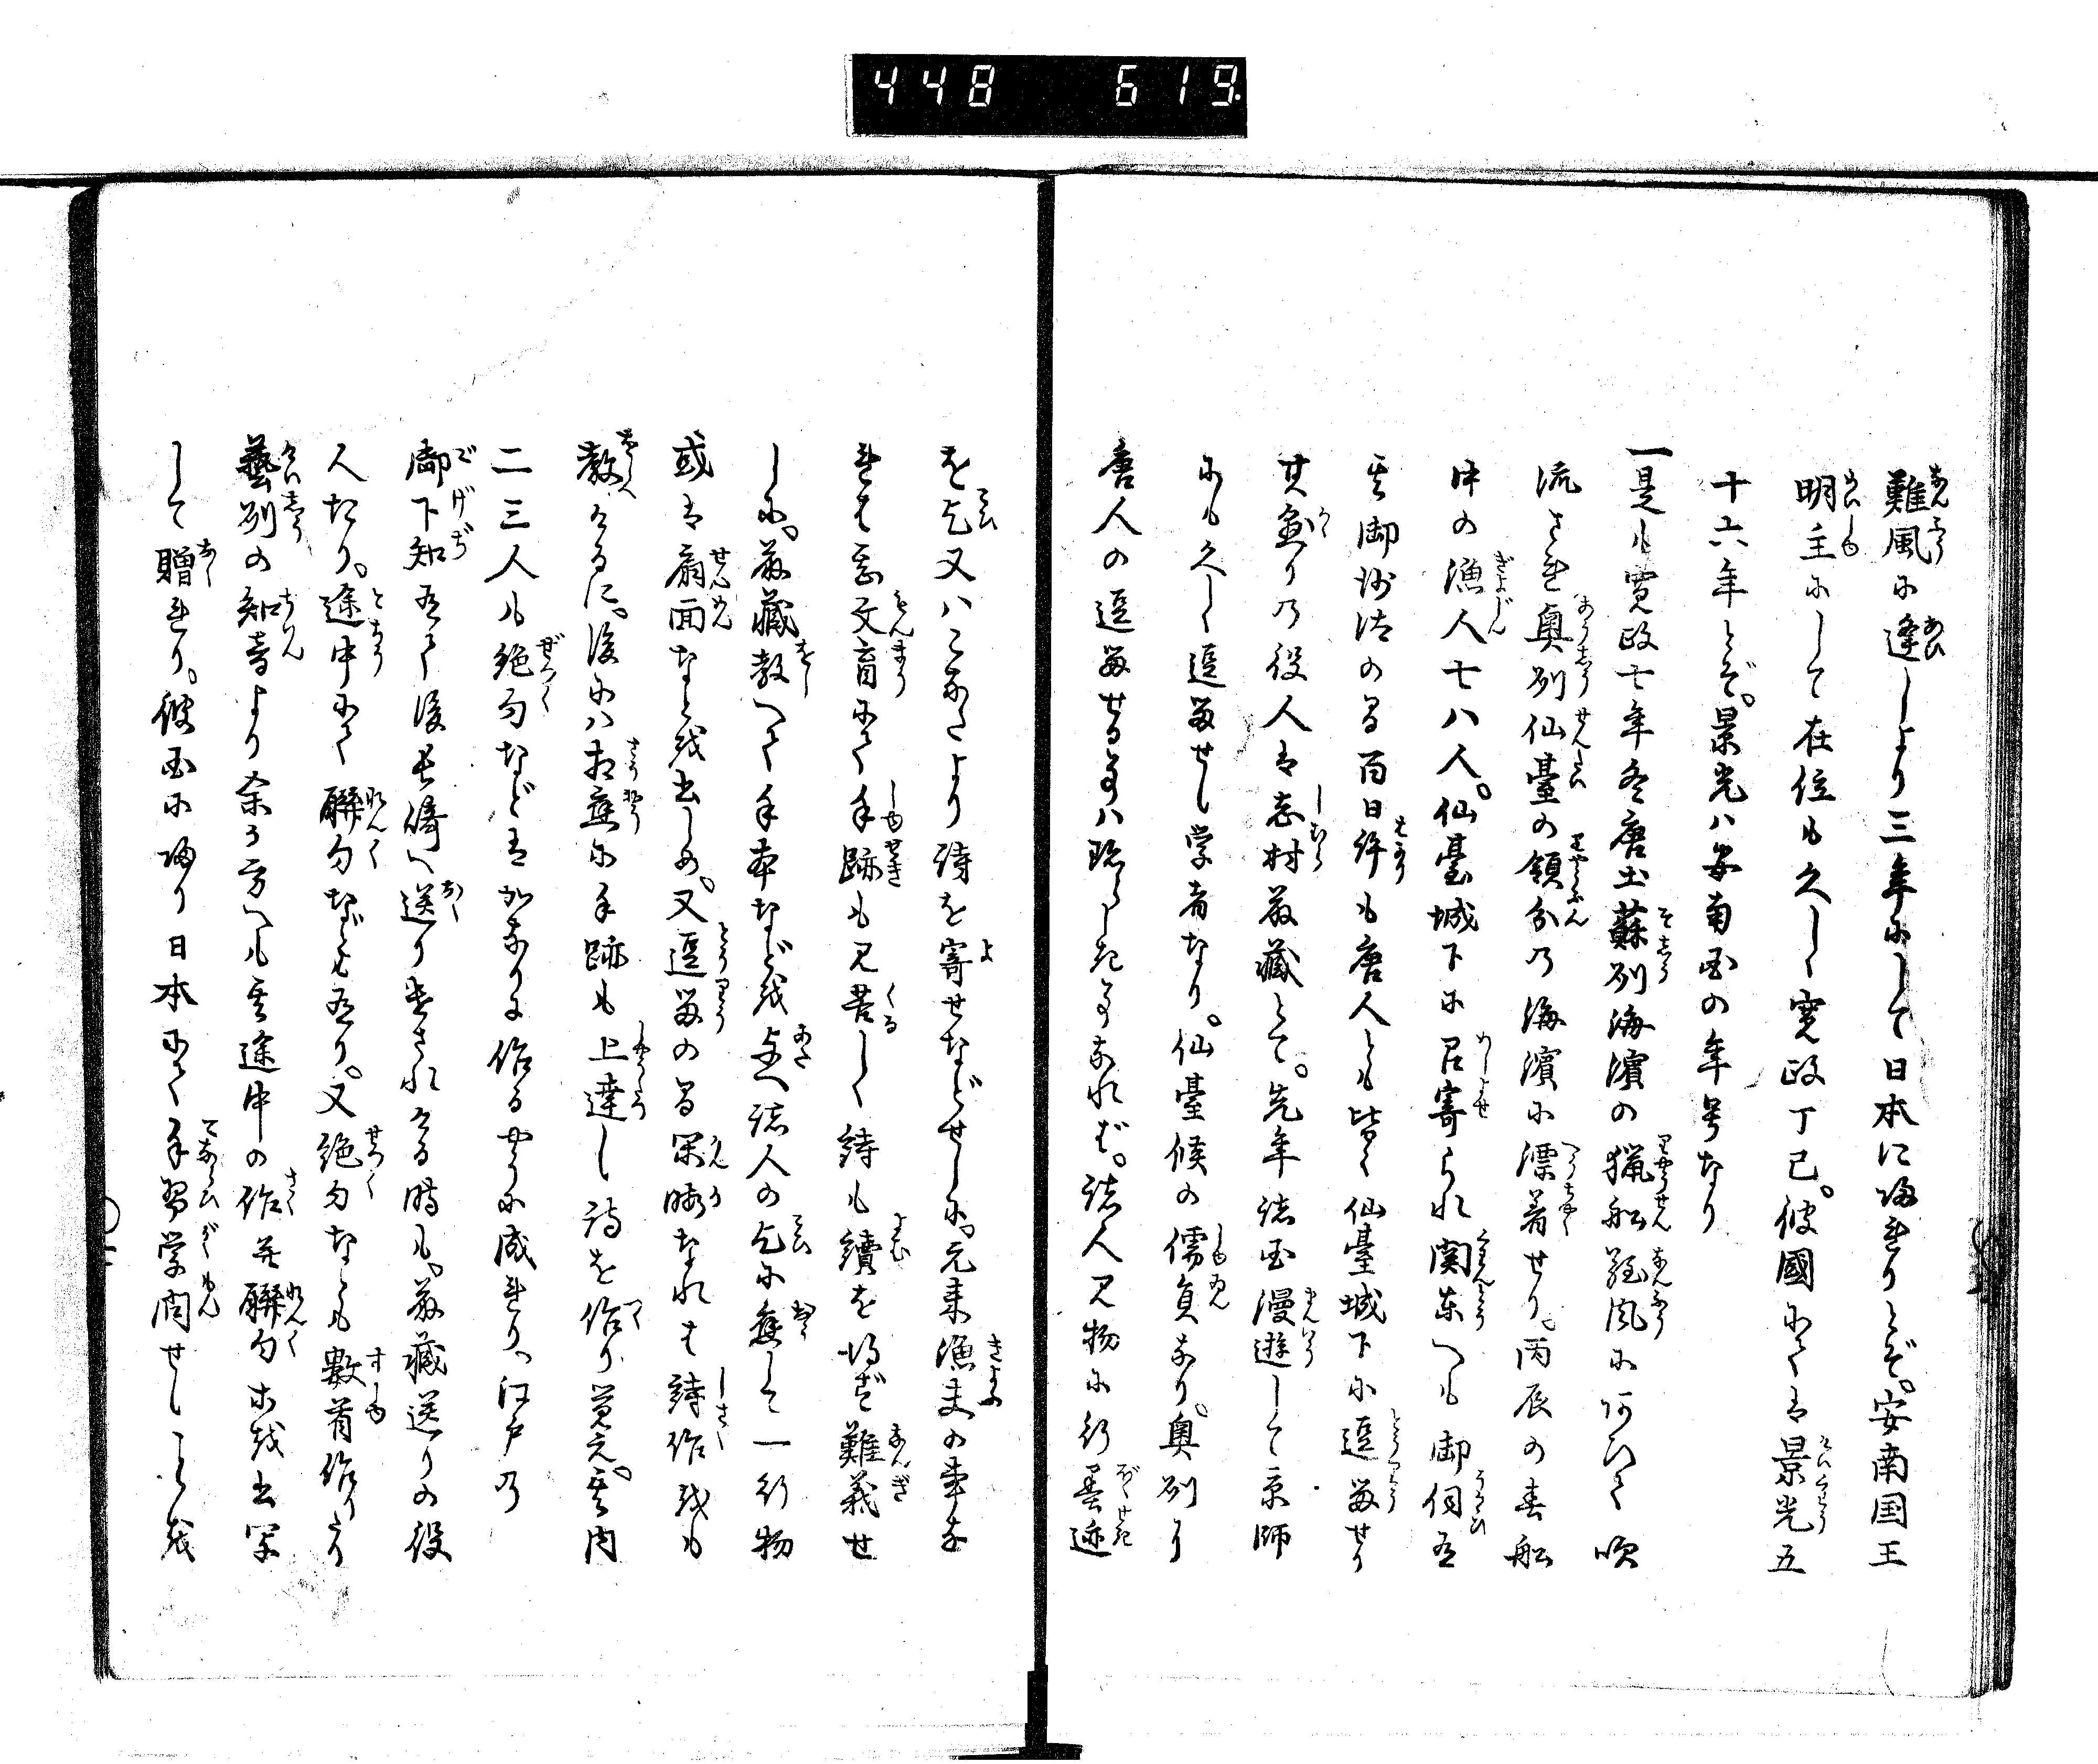 448 619
難風に逢しより三年にして日本に帰りけりとぞ。安南国王
明主にして在位も久しく寛政丁巳。彼國にては景光五
十六年とぞ。景光ハ安南国の年号なり
一是も寛政七年冬唐土蘇州海濱の猟船難風にあひて吹
流され奥州仙臺の領分の海濱に漂着せり。丙辰の春船
中の漁人七八人。仙臺城下に召寄られ関東へも御伺有
其御沙汰の間百日許も唐人とも皆〻仙臺城下に逗留せり
其懸りの役人は志村藤藏とて。先年諸国漫遊して京師
にも久しく逗留せし学者なり。仙臺候の儒員なり。奥州り
唐人の逗留せる事ハ珍しき事なれば。諸人見物に行墨迹
を乞又ハこなたより詩を寄せなどせしに。元来漁夫の事な
れは無文盲にて手跡も見苦しく詩も續を得ず難義せ
しに。藤藏教へて手本などを与へ諸人の乞に應して一行物
或は扇面なとを書しめ。又逗留の間閑暇なれは詩作をも
教へけるに。後にハ相應に手跡も上達し詩を作り覚え。其内
二三人も絶句などはかなりに作るやうに成けり。江戸の
御下知有て後長崎へ送り遣されける時も。藤藏送りの役
人たり。途中にて聯句なども有り。又絶句なとも數首作りたり
藝州の知音より余か方へも其途中の作并聯句等を書写
して贈れり。彼国に帰り日本にて手習学問せしことを